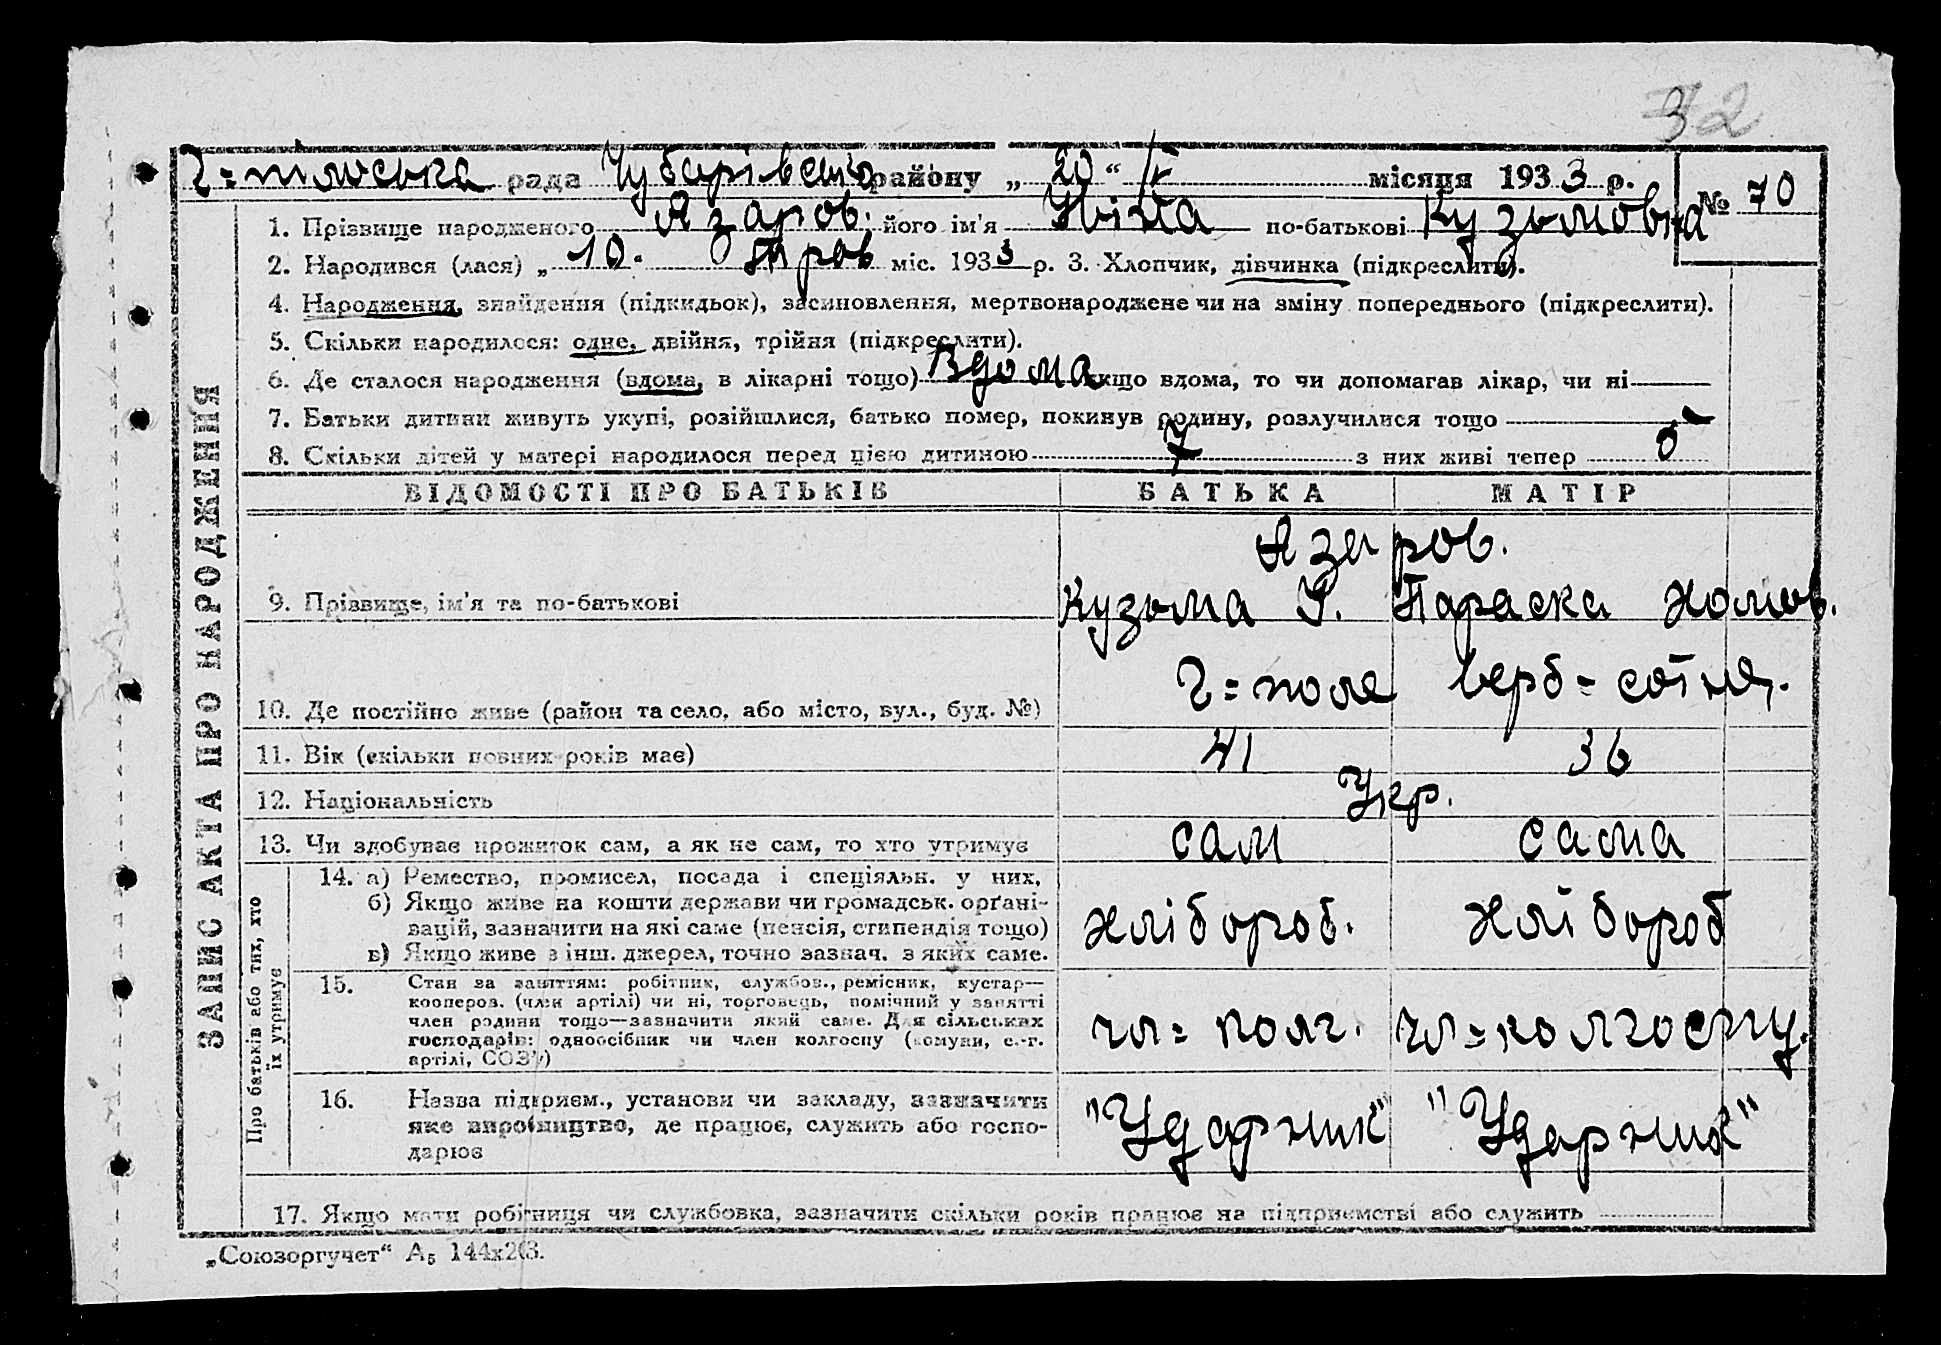 32
Г=пільська рада Чубарівськ району „ 20 “ IV місяця 1933 р. № 70
1. Прізвище народженого Азаров. його ім'я Ніна по-батькові Кузьмовна
2. Народився (лася) „ 10. міс. 1933 р. 3. Хлопчик, дівчинка (підкреслити).
4. Народження, знайдення (підкидьок), засиновлення, мертвонароджене чи на зміну попереднього (підкреслити).
5. Скільки народилося: одне, двійня, трійня (підкреслити).
6. Де сталося народження (вдома, в лікарні тощо) Вдома якщо вдома, то чи допомагав лікар, чи ні
7. Батьки дитини живуть укупі, розійшлися, батько помер, покинув родину, розлучилися тощо
8. Скільки дітей у матері народилося перед цією дитиною 7 з них живі тепер
ЗАПИС АКТА ПРО НАРОДЖЕННЯ
ВІДОМОСТІ ПРО БАТЬКІВ БАТЬКА МАТІР
Азаров.
9. Прізвище, ім'я та по-батькові Кузьма Параска Хомов.
10. Де постійно живе (район та село, або місто, вул., буд. №) Г=поле верб= сотня.
11. Вік (скільки повних років має) 41 36
12. Національність Укр.
13. Чи здобуває прожиток сам, а як не сам, то хто утримує сам сама
Про батьків або тих, хто їх утримує
14. а) Ремество, промисел, посада і спеціяльн. у них,
б) Якщо живе на кошти держави чи громадськ. орґані-
зацій, зазначити на які саме (пенсія, стипендія тощо) хлібороб. хлібороб
в) Якщо живе з інш. джерел, точно зазнач. з яких саме.
15. Стан за заняттям: робітник, службов., ремісник, кустар—
коопероз. (член артілі) чи ні, торговець, помічний у занятті
член родини тощо—зазначити який саме. Для сільських чл= колг. чл=колгоспу.
господарів: одноосібник чи член колгоспу (комуни, с.-г.
артілі, СОЗУ)
16. Назва підприєм., установи чи закладу, зазначити
яке виробництво, де працює, служить або госпо- "Ударник" "Ударник"
дарює
17. Якщо мати робітниця чи службовка, зазначити скільки років працює на підприємстві або служить
„Союзоргучет“ А5 144х203.